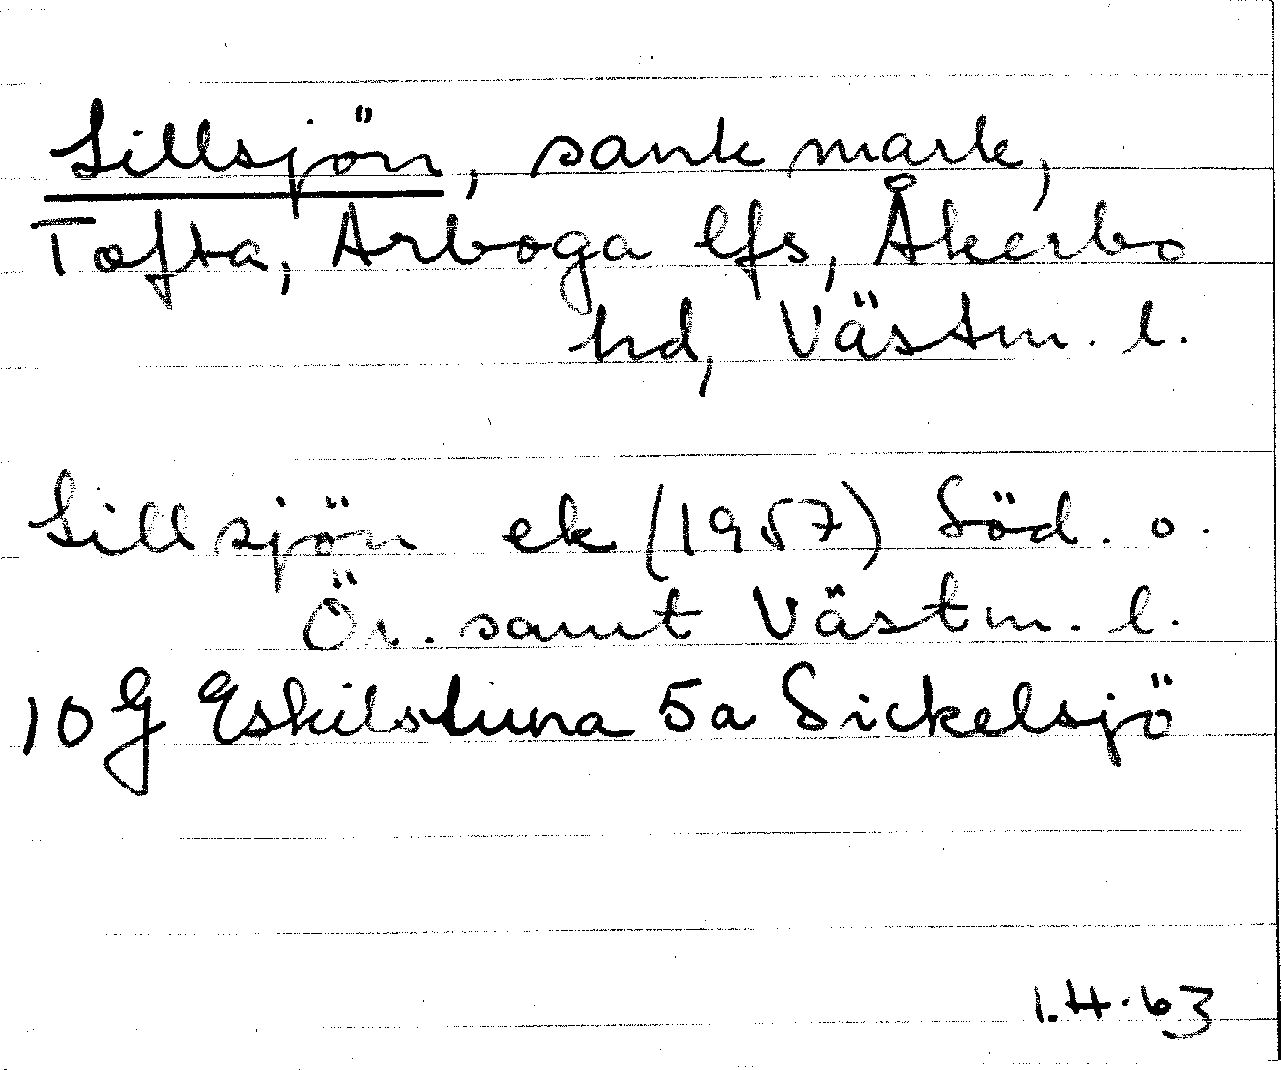 Lillsjön, sank mark,
Tofta, Arboga lfs, Åkerbo
hd, Västm. l.
Lillsjön ek (1957) Söd. o.
Ör. samt Västm. l.
10 G Eskilstuna 5a Sickelsjö
1.4.63